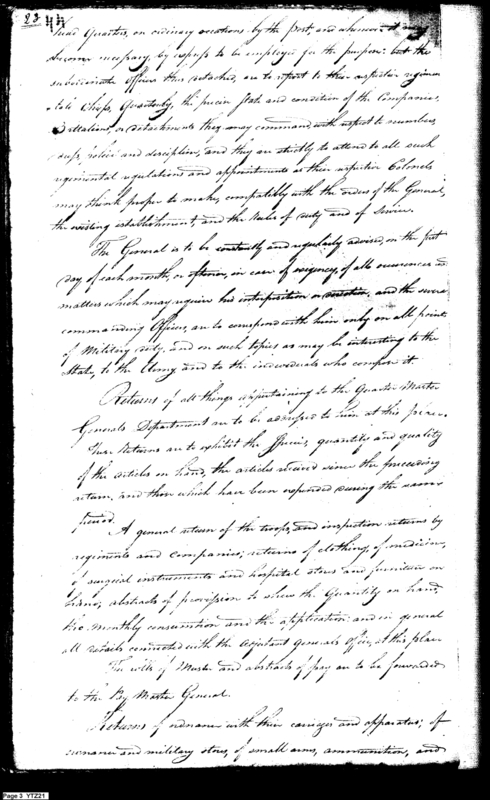 23 44
head Quarters, on ordinary occations by the post and whenever it may
become necessary, by express to be employed for the purpose: but the
subordinate officers thus detached, are to report to their respective regimen
-tal Chiefs, Quarterly, the precise state and condition of the Companies,
Battalions, or detachments they may command with respect to numbers,
police and discipline, and they are strictly to attend to all such
regimental regulations and appointments as their respective Colonels
may think proper to make, compatibly with the orders of the General,
the existing establishment, and the Rules of duty and of Service.
The General is to be constantly and regularly advised, on the first
day of each month, or oftener, in case of exigency, of all occurrences and
matters which may require his interposition or and the several
commanding Officers, are to correspond with him only on all points
of Military duty, and on such topics as may be interesting to the
State, to the Army and to the individuals who compose it.
Returns of all things appertaining to the Quarter Master
Generals Department are to be addressed to him at this place.
These Returns are to exhibit the Species, quantity and quality
of the articles on hand, the articles received since the preceeding
return, and those which have been expended during the same
period.
A general return of the troops, and inspection returns by
regiments and companies; returns of clothing, of medicine,
of surgical instruments and hospital stores and furniture on
hand; abstracts of provission to shew the Quantity on hand,
the monthly consumtion and the application: and in general
all details connected with the Adjutant generals office, at this place
The rolls of Muster and abstracts of pay are to be forwarded
to the Pay Master General.
Returns of ordnance with their carriages and apparatus; of
ordnance and military stores, of small arms, ammunition, and
Page 3 YTZ21